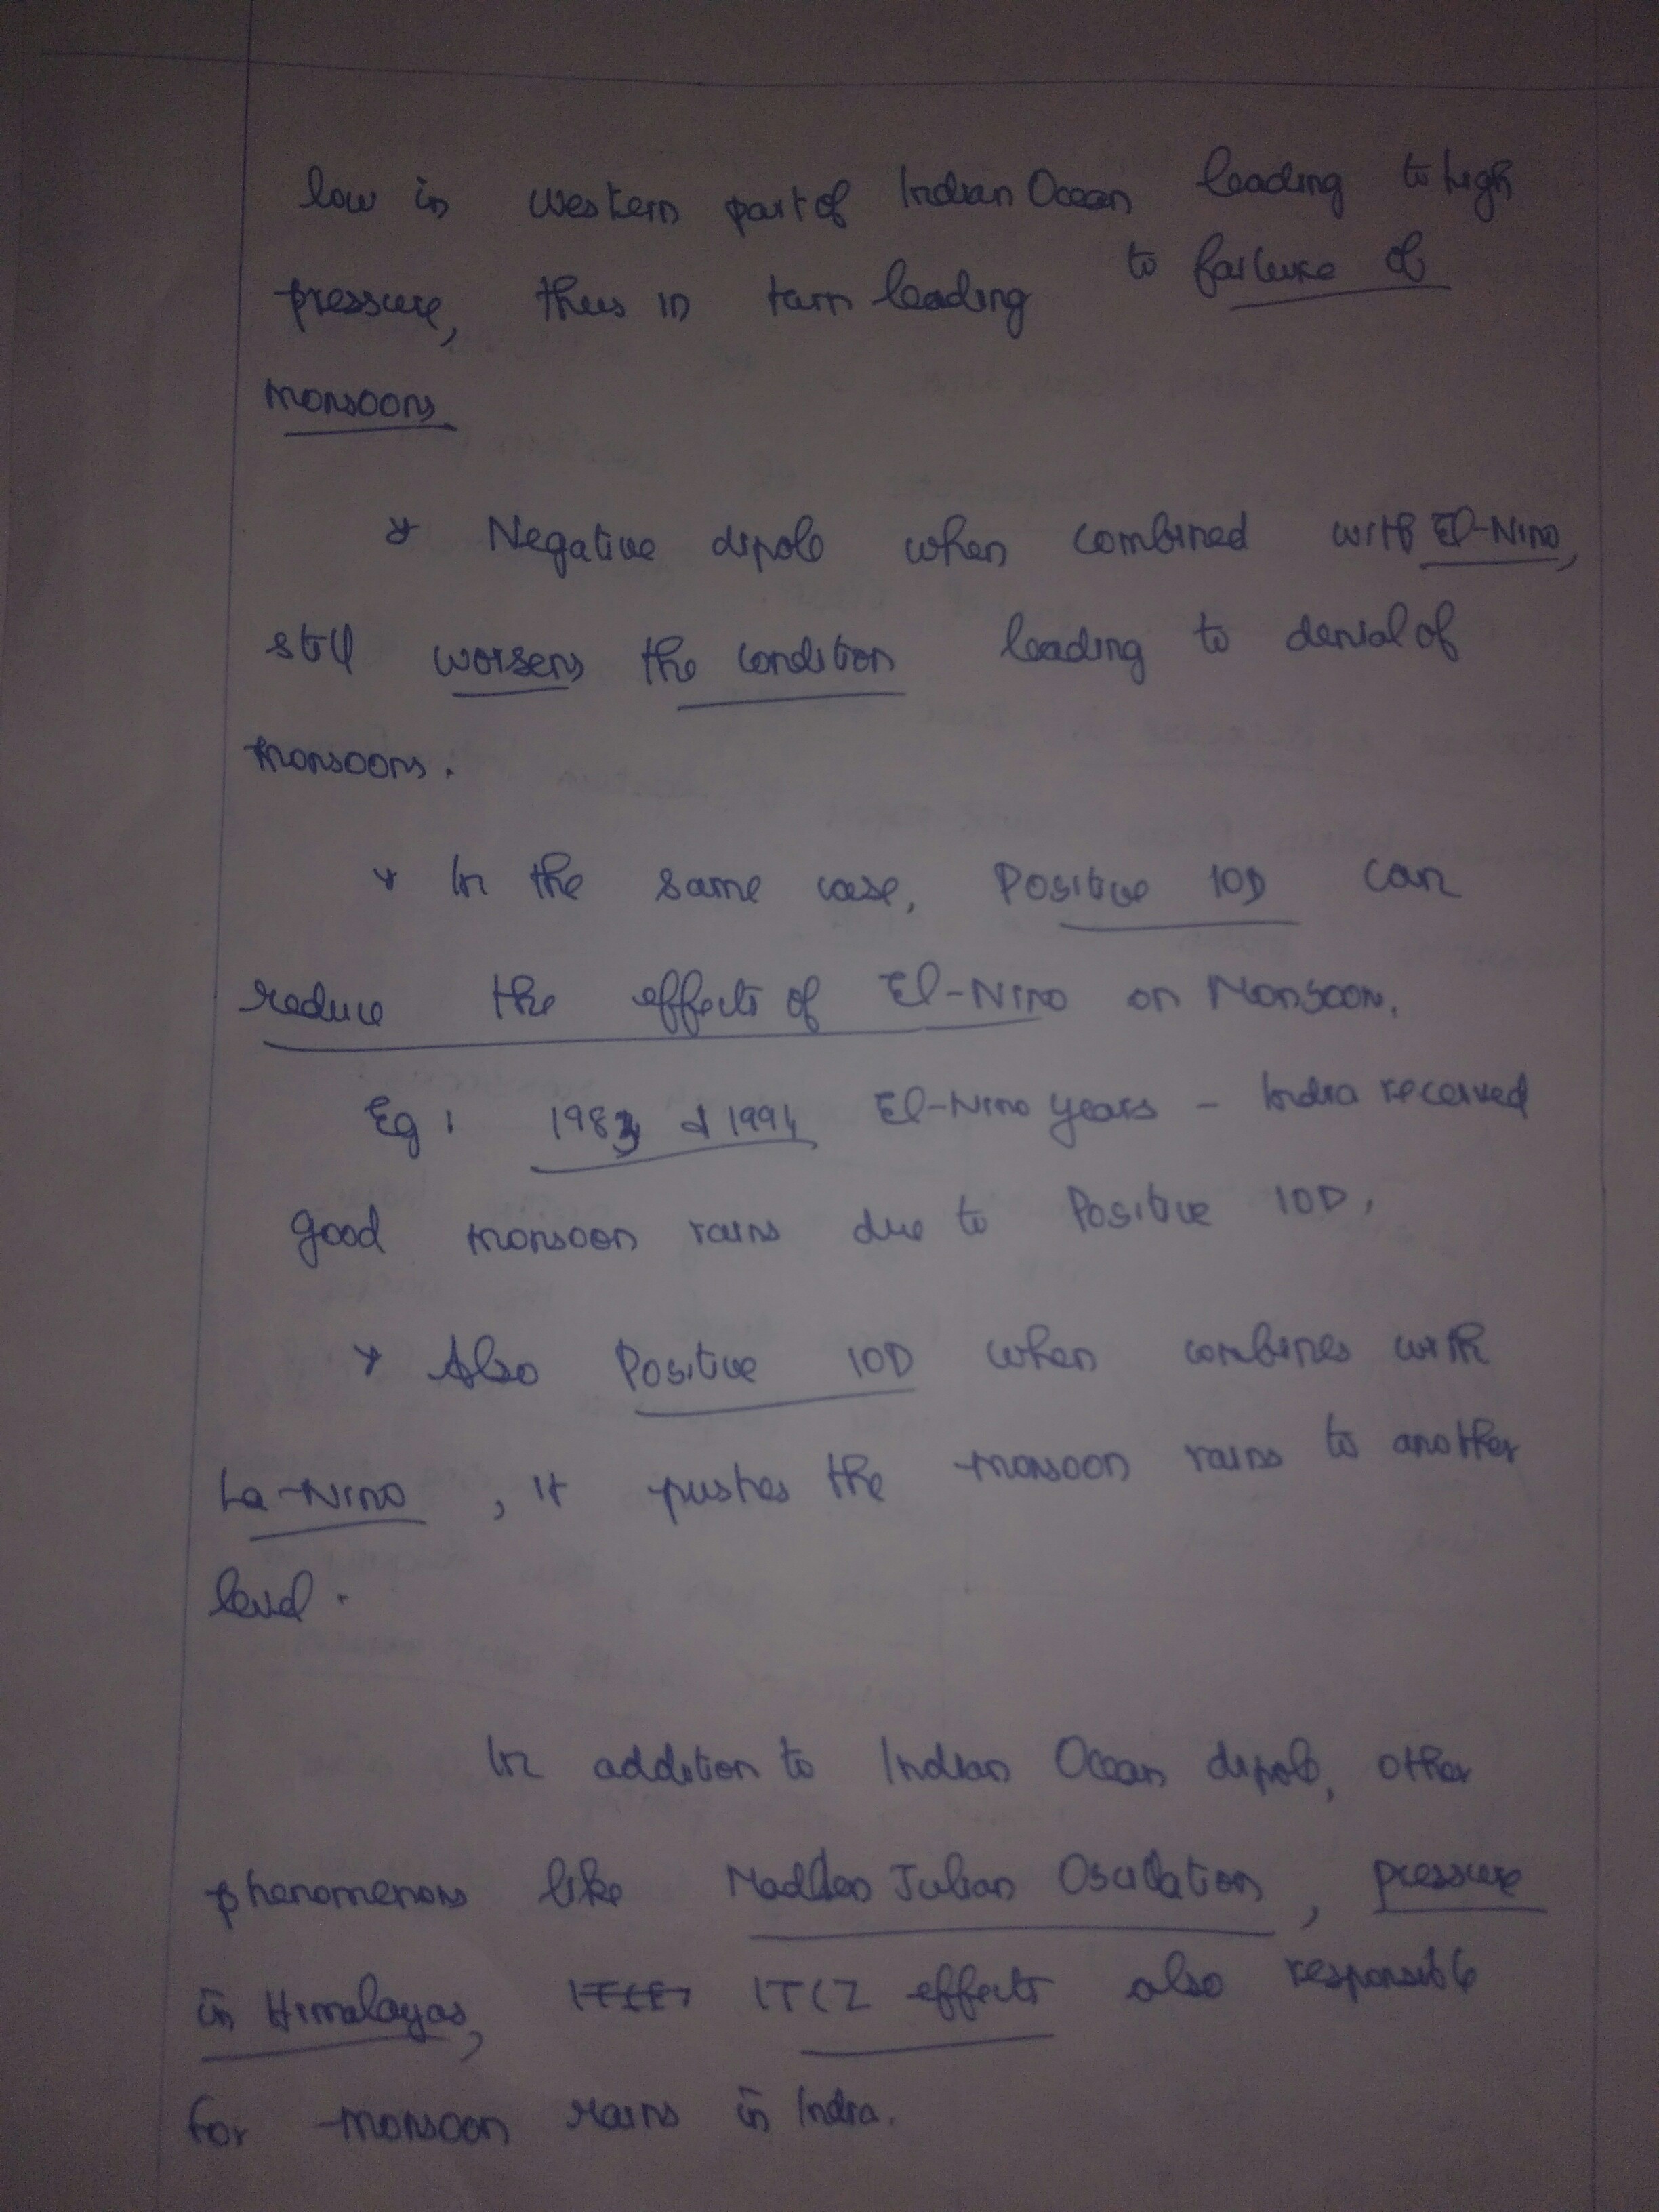 low in western part of Indian Ocean leading to high
pressure, thus in turn leading to failure of
monsoons.
* Negative dipole when combined with El-Nino,
still worsens the condition leading to denial of
monsoons.
* In the same case, Positive IOD can
reduce the effects of El-Nino on Monsoon.
Eg: 1983 & 1994 El-Nino years - India received
good monsoon rains due to Positive IOD.
* Also Positive IOD when combines with
La-Nino, it pushes the monsoon rains to another
level.
In addition to Indian Ocean dipole, other
phenomenons like Madden Julian Oscillation, pressure
in Himalayas, ITCZ effects also responsible
for monsoon rains in India.